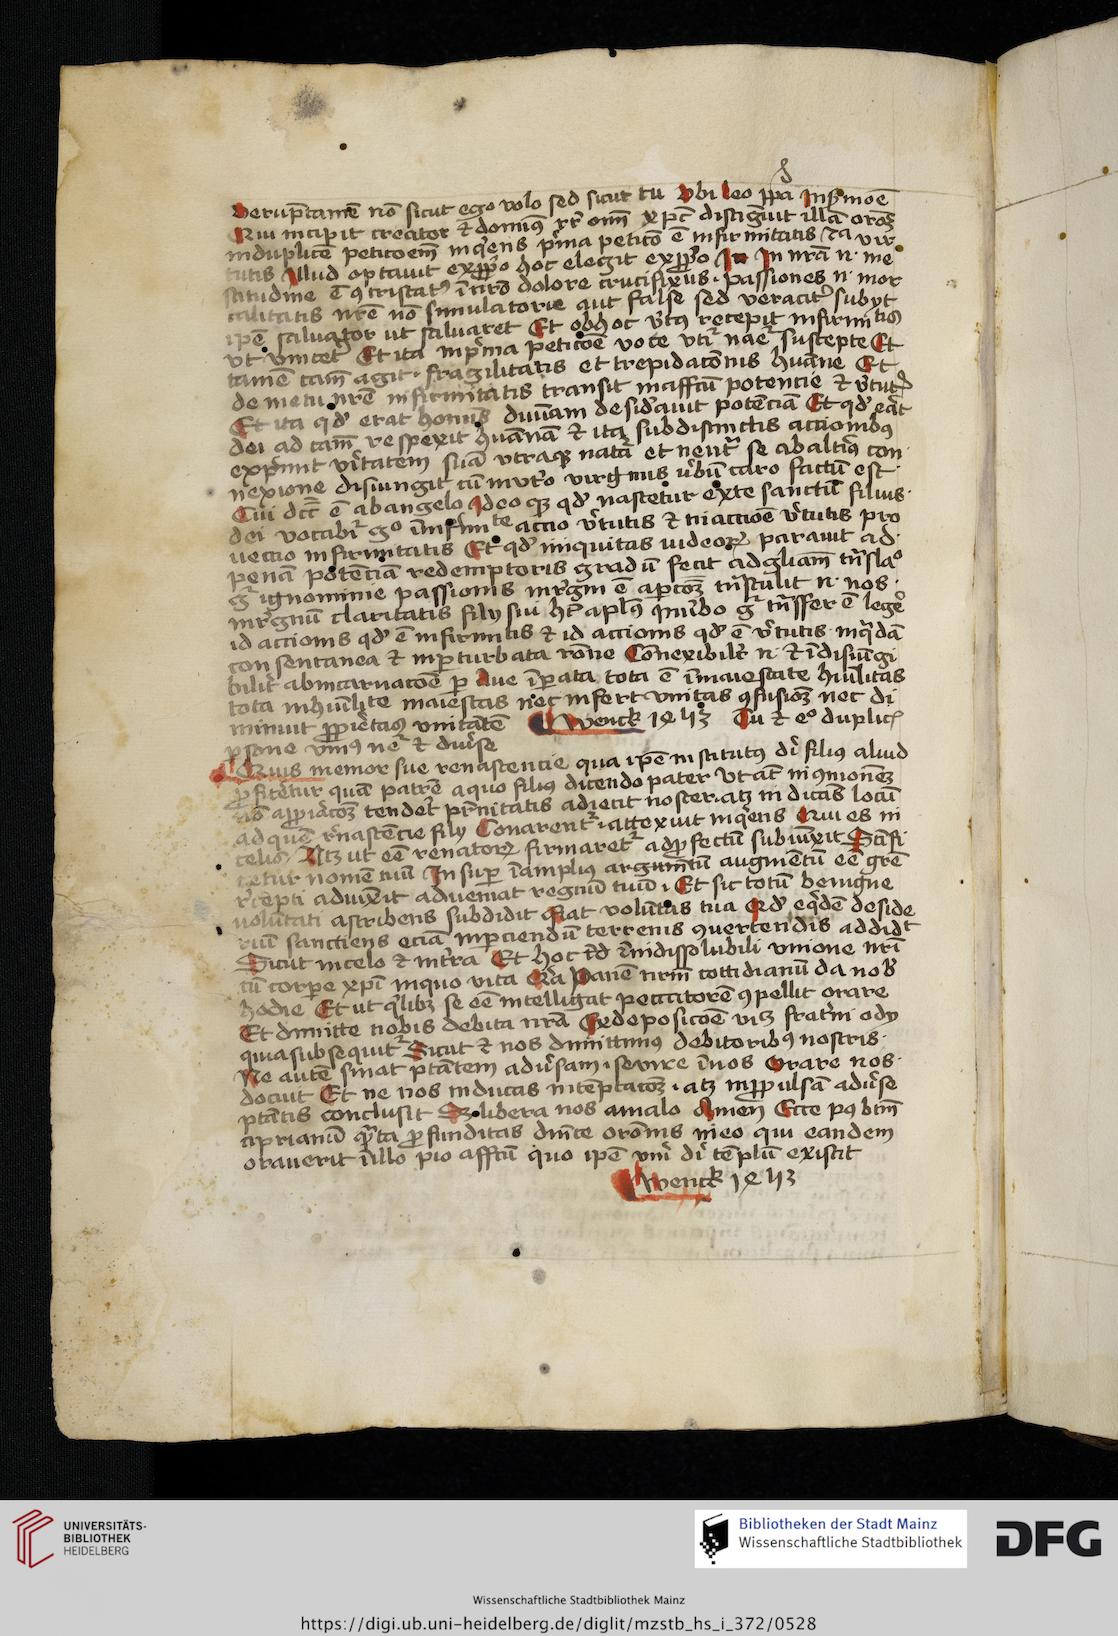 verūptamē nō sicut ego volo sed sicut tu Vbi leo ppa in sermoē
Qui incipit creator & domiꝰ omī xpc distīguit illā oroꝫ
induplicē peticoem inqͥens pͥma peticō ē infirmitatis 2a vir
tutis Illud optauit exppͥo hoc elegit exppͥo In nrā n̄ me
stitudine ē ꝯtristatꝰ dolore crucifixus passiones n̄ mor
talitatis nrē nō simulatorie aut false sed veracit subijt
ipē saluator ut saluaret Et ob hoc vͥtꝰ recepit infirmitatis
vt vinceret Et ita inpͥma peticōe voce utit nae suscepte Et
tamē cam agit fragilitatis et trepidacōnis huāne Et
de metu nrē infirmitatis transit inaffcū potencie & vͥtut
Et ita qd erat homis diuinam desiderauit potēciā Et qd erat
dei ad cam respexit huānā & ita subdistinctis actionibꝰ
expͥmit vͥtatem suā vtraqꝫ natā et neut se ab altͥꝰ con
nexione disiungit cū in vtͦ virginis vͥbū caro factū est
Cui dcc̄ ē ab angelo Ideoqꝫ qd nascetur exte sanctū filius
dei vocabit gͦ infirmite accio vͥtutis & in accioē vͥtutis pro
uectio infirmitatis Et qd iniquitas iudeoꝝ parauit ad
penā potēciā redemptoris gradū fecit ad gliam tn̄slaͦ
gͥ ignominie passionis inrͥgm ē apcoꝫ tn̄stulit n̄ nos
inrͥgnū claritatis filij sui hc̄ aplꝰ In vͥbo gͥ tn̄sffer ē legeͥ
id accionis qd ē infirmitatis & id accionis qd ē vͥtutis inqͥdā
consentanea & inperturbata rōne Conexibilit n̄ & indisiūgi
bilit ab incarnacoē ꝑ Aue īpata tota ē in maiestate hūilitas
tota in hūilite maiestas nec infert vnitas ꝯfusioꝫ nec di
mimuit ppͥetas vnitatem Wenck 1453 Tu & eͦ duplicͥ
psone vniꝰ ne & diuͥse
Quis memor sue renascencie qua ipē institutꝰ di filius aliud
pfitetur quā patrē a quo filiꝰ dicendo pater Vt at in ꝯmonem
nō tenderet pͥnitatis adiecit noster atqꝫ in dicās locū
ad quē rͥnascēcie filij Conarent attexuit inqͥens Qui es in
celis Atqꝫ ut eē renatoꝝ firmaret ad pfectū subiūxit Scīfi
cetur nomē tuū Insup īamplius argumētū augmētū eē grē
rͥcepti adiūxit adueniat regnū tuū Et sic totū benigne
volūtati ascribens subdidit fiat volūtas tua Qd eqͥdē deside
riū sanctiens eciā inpciendū terrenis ꝯuertendis addidt
Sicut in celo & in tͥra Et hoc indissolubili vnione nrī
cū corpe xpī in quo vita Panē nrm cottidianū da nob
hodie Et ut qͥlibꝫ se eē intelligat peccatorē ꝯpellit orare
Et dimitte nobis debita nrā Et deposicoē vitꝫ frat̄ni odij
quia subsequit Sicut & nos dimittimꝰ debitoribꝰ nostris
Ne autē sinat ptatem aduͥsam seuire in nos orare nos
docuit Et ne nos inducas intēptacoꝫ atqꝫ inppulsā aduͥse
ptatis conclusit Sꝫ libera nos amalo Amen Ecce pꝰ btm̄
ciprianū qͥnta pfunditas dnīce orōnis in eo qui eandem
orauerit illo pio affcū quo ipē di tēplū existit
Wenck 1453
UNIVERSITÄTS-
BIBLIOTHEK
HEIDELBERG
Bibliotheken der Stadt Mainz
Wissenschaftliche Stadtbibliothek
DFG
Wissenschaftliche Stadtbibliothek Mainz
https://digi.ub.uni-heidelberg.de/diglit/mzstb_hs_i_372/0528